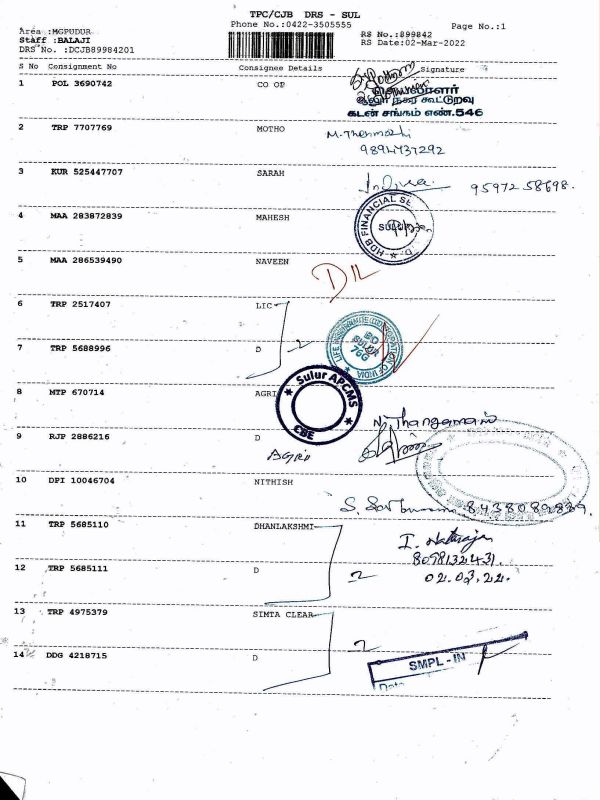 TPC/CJB DRS - SUL
Phone No.:0422-3505555
Page No.:1
Area :MGPUDUR
Staff :BALAJI
DRS No. :DCJB89984201
RS No. :899842
RS Date:02-Mar-2022
S No Consignment No Consignee Details Signature
1 POL 3690742 CO OP
செயலாளர்
கடன் சங்கம் எண்.546
2 TRP 7707769 MOTHO
9894737292
3 KUR 525447707 SARAH
95972 58698.
4 MAA 283872839 MAHESH
HDB FINANCIAL SE
SULUR
5 MAA 286539490 NAVEEN
6 TRP 2517407 LIC
2
LIFE INSURANCE CORPORATION OF INDIA
BO
SULUR
76G
7 TRP 5688996 D
8 MTP 670714 AGRI
Sulur APCMS
CBE
N. Thangamani
9 RJP 2886216 D
AGRI
10 DPI 10046704 NITHISH
8438089889.
11 TRP 5685110 DHANLAKSHMI
I. Nataraja
8098132431.
02.03.22.
12 TRP 5685111 D
2
13 TRP 4975379 SIMTA CLEAR
2
14 DDG 4218715 D
SMPL - IN
Date